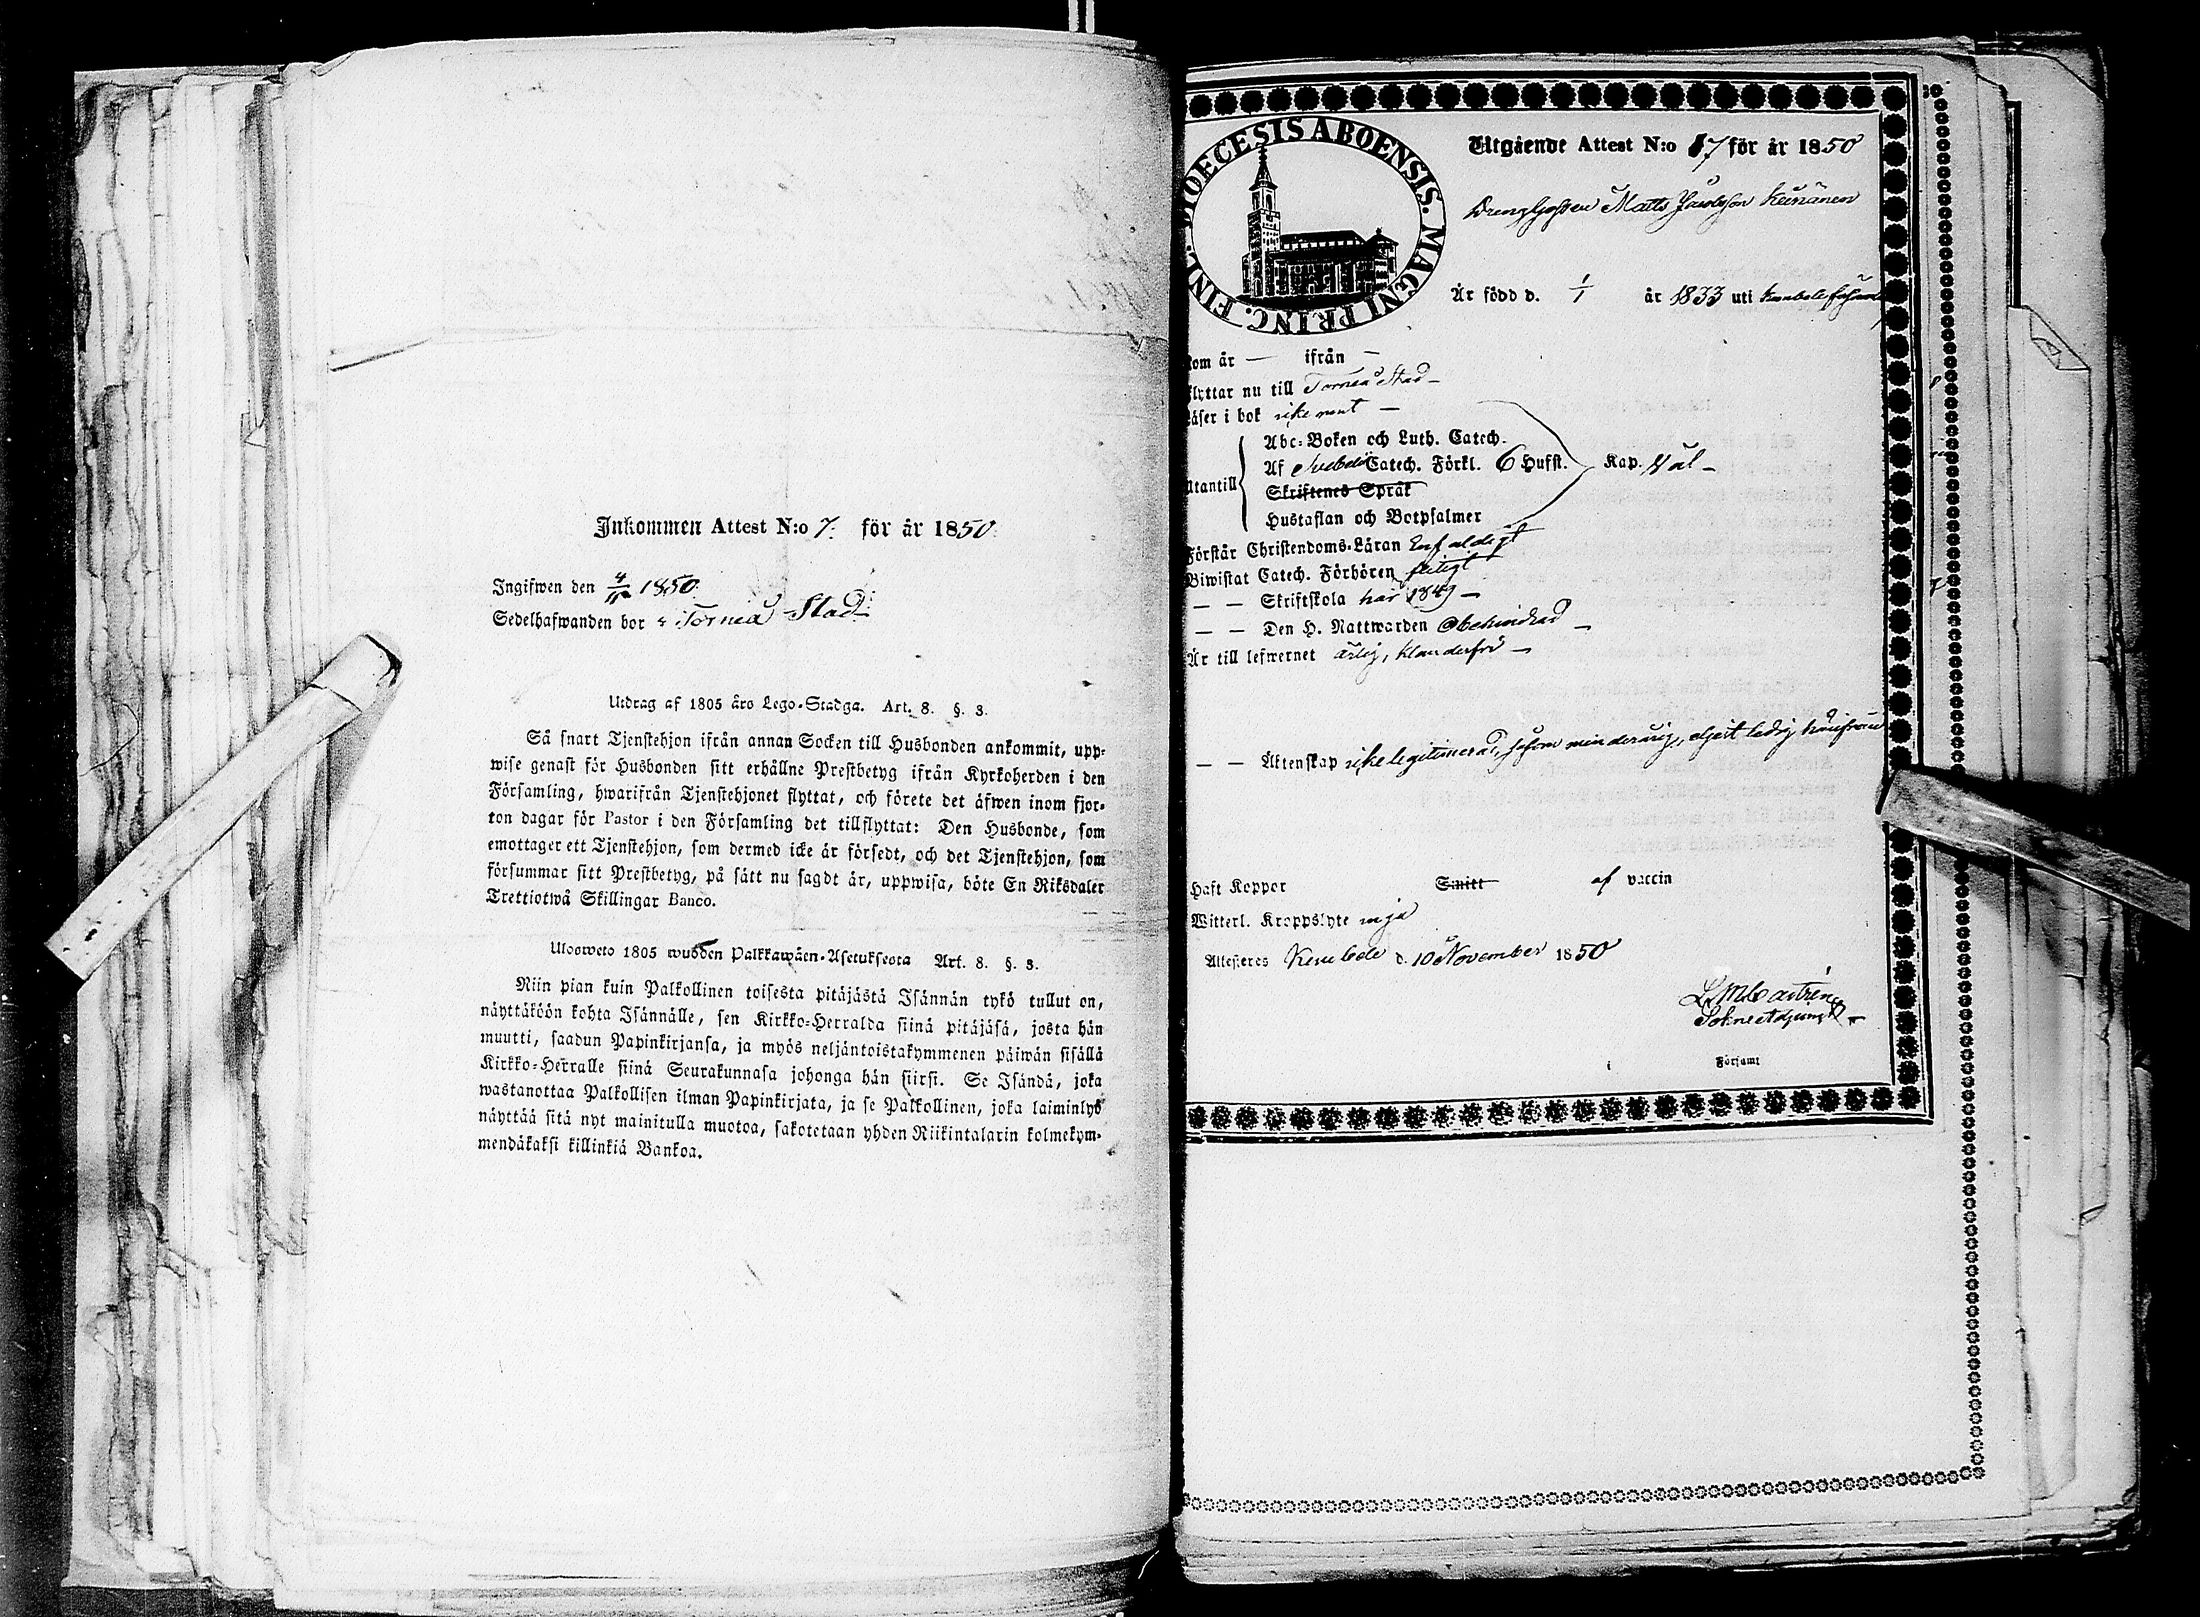 Inkommen Attest N:o 7. för år 1850.
Ingifwen den 4/11 1850.
Sedelhafwanden bor i Torneå Stad.
Utdrag af 1805 års Lego-Stadga. Art. 8. §. 3.
Så snart Tjenstehjon ifrån annan Socken till Husbonden ankommit, upp-
wise genast för Husbonden sitt erhållne Prestbetyg ifrån Kyrkoherden i den
Församling, hwarifrån Tjenstehjonet flyttat, och förete det äfwen inom fjor-
ton dagar för Pastor i den Församling det tillflyttat: Den Husbonde, som
emottager ett Tjenstehjon, som dermed icke är försedt, och det Tjenstehjon, som
försummar sitt Prestbetyg, på sätt nu sagdt är, uppwisa, böte En Riksdaler
Trettiotwå Skillingar Banco.
Ulosweto 1805 wuoden Palkkawäen-Asetuksesta Art. 8. §. 3.
Niin pian kuin Palkollinen toisesta pitäjästä Isännän tykö tullut on,
näyttäköön kohta Isännälle, sen Kirkko-Herralda siinä pitäjäsä, josta hän
muutti, saadun Papinkirjansa, ja myös neljäntoistakymmenen päiwän sisällä
Kirkko-Herralle siinä Seurakunnasa johonga hän siirsi. Se Isändä, joka
wastanottaa Palkollisen ilman Papinkirjata, ja se Palkollinen, joka laiminlyö
näyttää sitä nyt mainitulla muotoa, sakotetaan yhden Riikintalarin kolmekym-
mendäkaksi killinkiä Bankoa.
DIOECESIS ABOENSIS. MAGNI PRINC. FINL.
Utgående Attest N:o 87 för år 1850
Drenggossen Matts Jacobsson Keinänen
Är född d. 1/1 år 1833 uti
kom år — ifrån —
flyttar nu till Torneå Stad —
Läser i bok icke rent —
Abc-Boken och Luth. Catech.
Af Svebelii Catech. Förkl. 6 Hufst. Kap. Väl —
Utantill
Skriftenes Språk
Hustaflan och Botpsalmer
Förstår Christendoms-Läran Enfaldigt
Biwistat Catech. Förhören flitigt
— — Skriftskola här 1849 —
— — Den H. Nattwarden Obehindrad —
Är till lefwernet ärlig, klanderfri —
— — Äktenskap icke legitimerad, såsom minderårig, eljest ledig härifrån
Haft Koppor Smitt af vaccin
Witterl. Kroppslyte
Attesteras d. 10 November 1850
L M Castrén
Församl